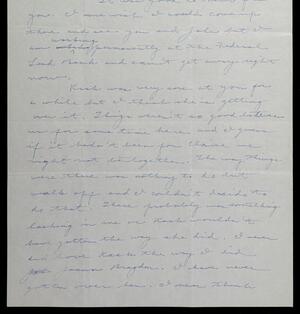 It was good to hear from
you. I sure wish I could come up
there and see you and Jake but I
am working permanently at the Federal
Land Bank and can't get away right
now.
was very sore at you for
a while but I think she is getting
over it. Things weren't so good between
us for some time here and I guess
if it hadn't been for Elaine we
might not be together. The way things
were there was nothing to do but
walk off and I couldn't decide to
do that. There probably was something
lacking in me or wouldn't
have gotten the way she did. I never
did love the way I did
Joanna Bragdon. I have never
gotten over her. I never